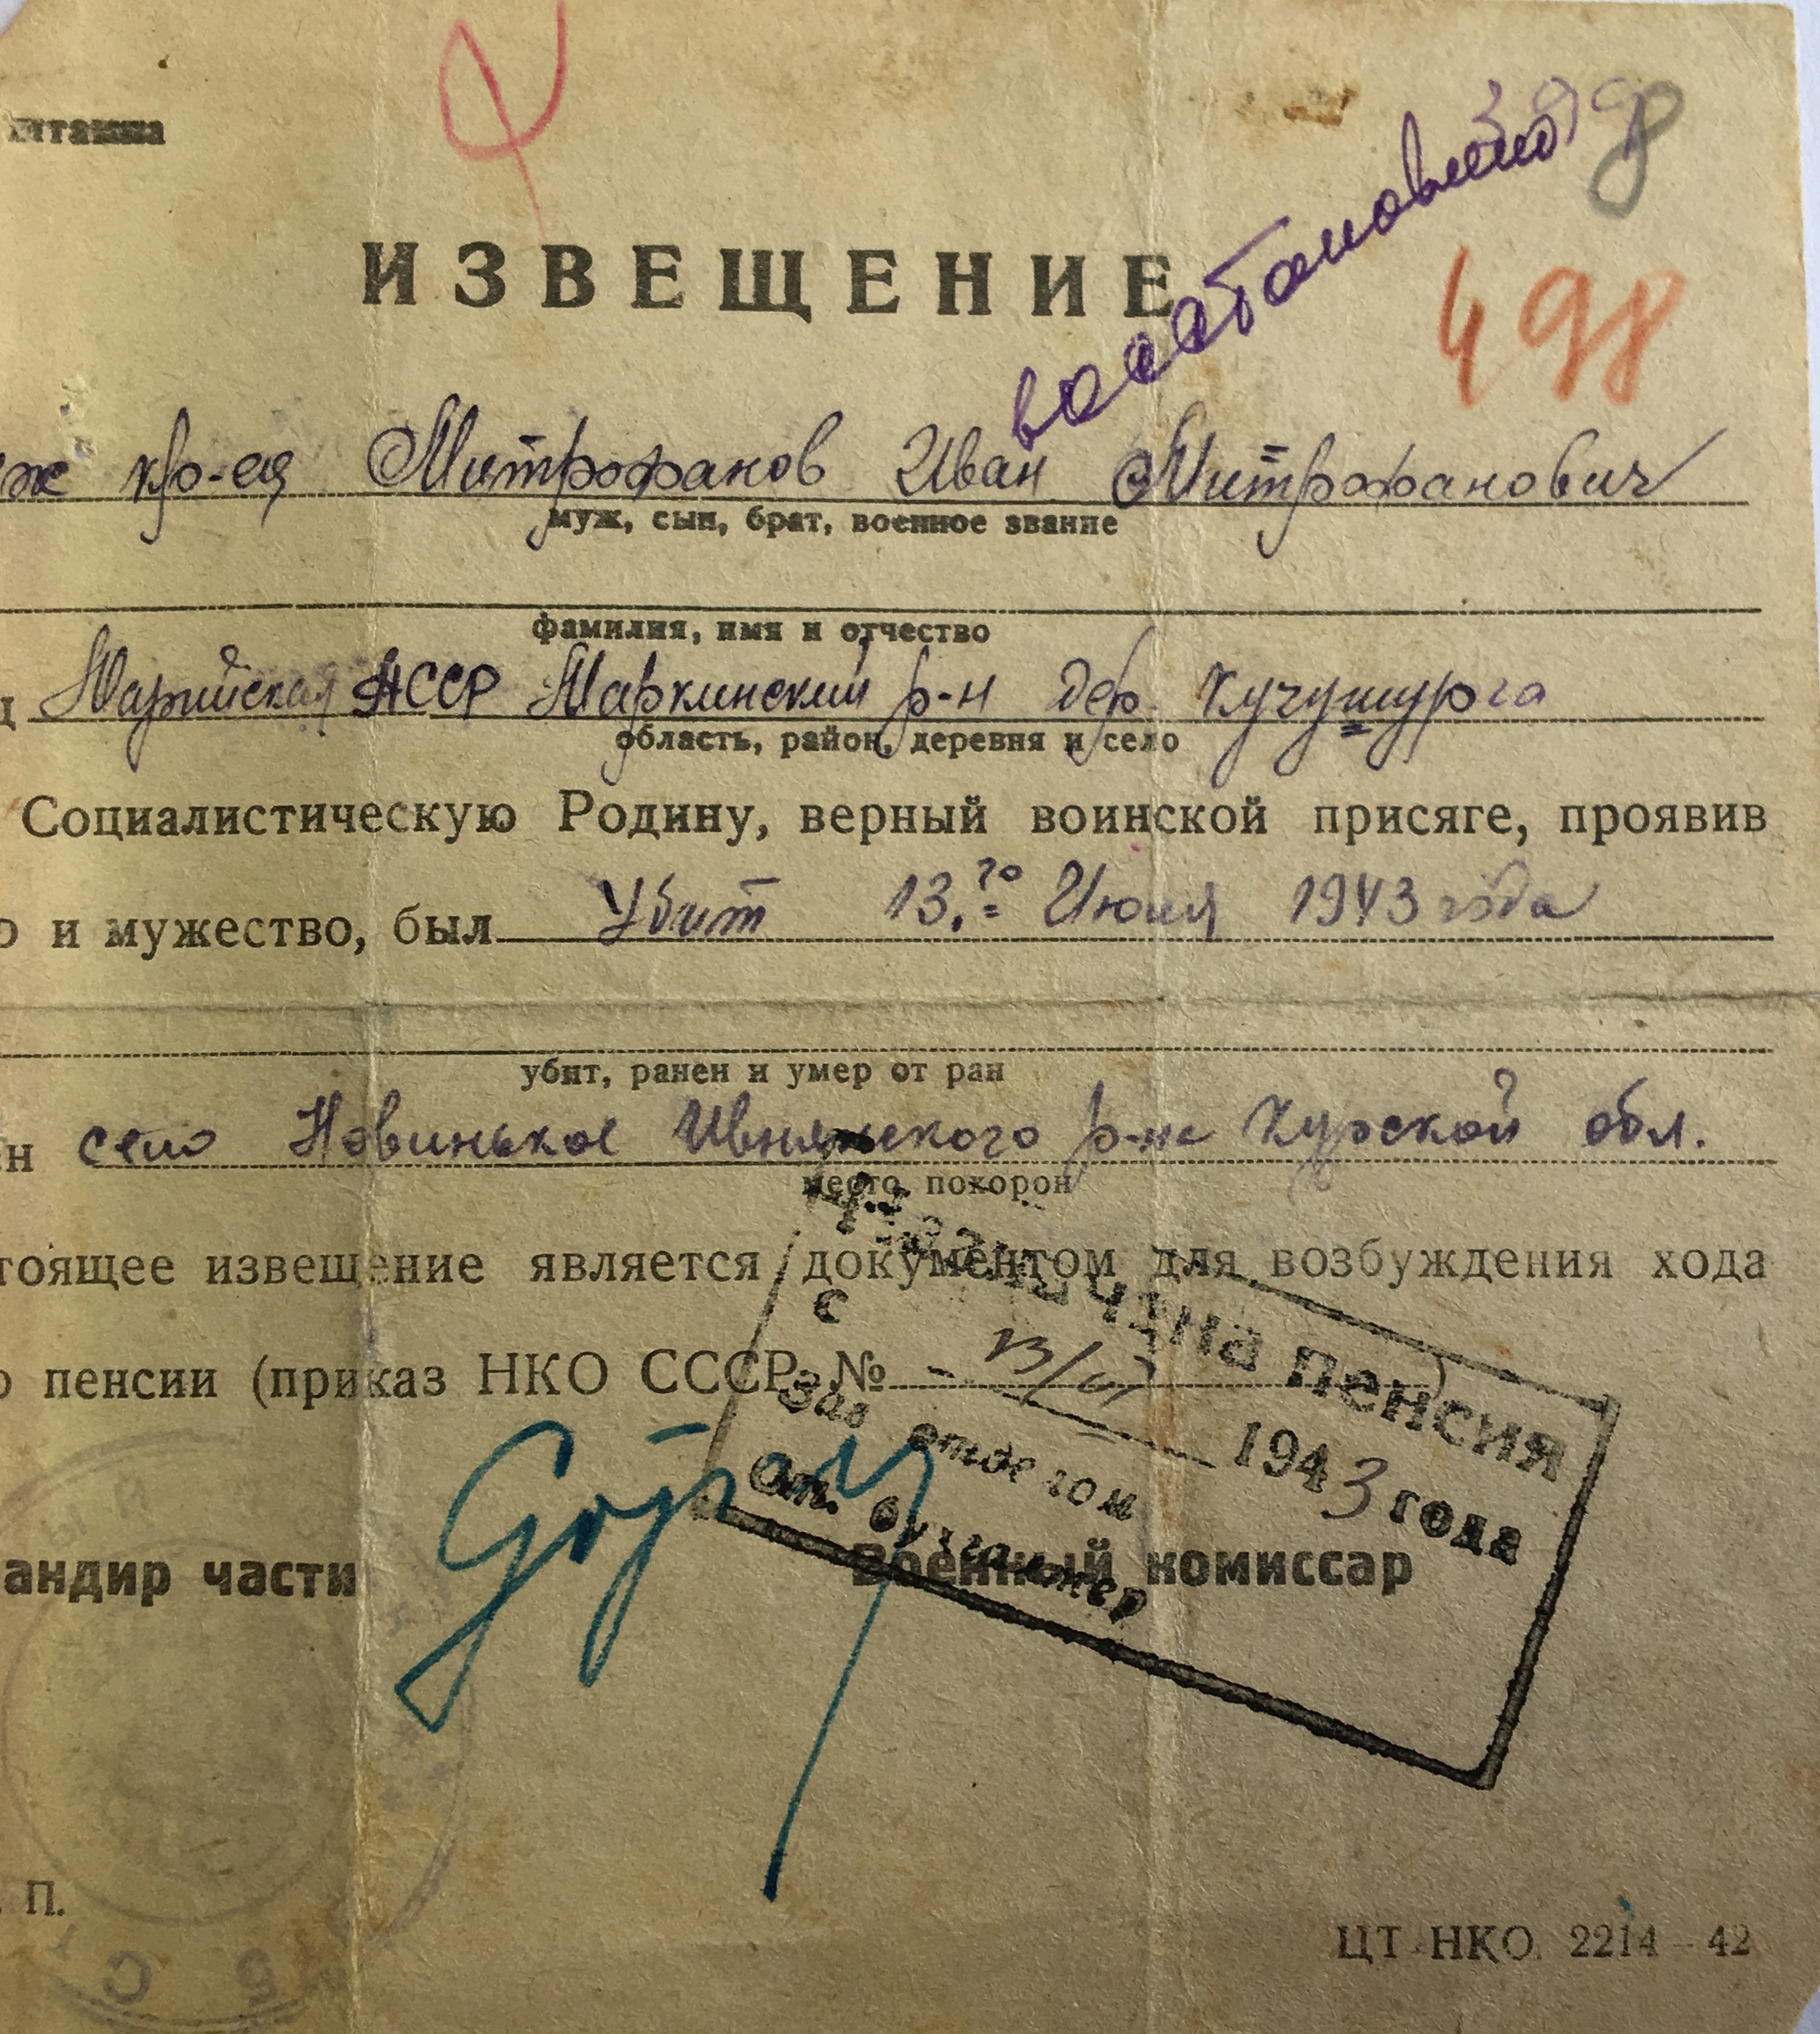 восстановлено
498
ИЗВЕЩЕНИЕ
кр-ец Митрофанов Иван Митрофанович
муж, сын, брат, военное звание
фамилия, имя и отчество
Марийская АССР Маркинский р-н дер. Кучушурга
область, район, деревня и село
Социалистическую Родину, верный воинской присяге, проявив
о и мужество, был Убит 13.го Июня 1943 года
убит, ранен и умер от ран
н село Новинькое Ивнянского р-на Курской обл.
место похорон
тоящее извещение является документом для возбуждения хода
о пенсии (приказ НКО СССР №)
Назначена пенсия
с 1943 года
Зав отделом
Ст. бухгалтер
андир части
Военный комиссар
П.
ЦТ НКО. 2214—42